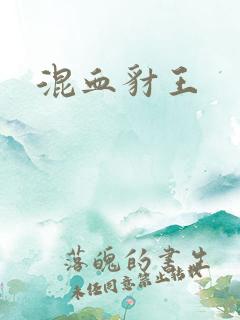 混血豺王
落魄的书生
未经同意禁止转载